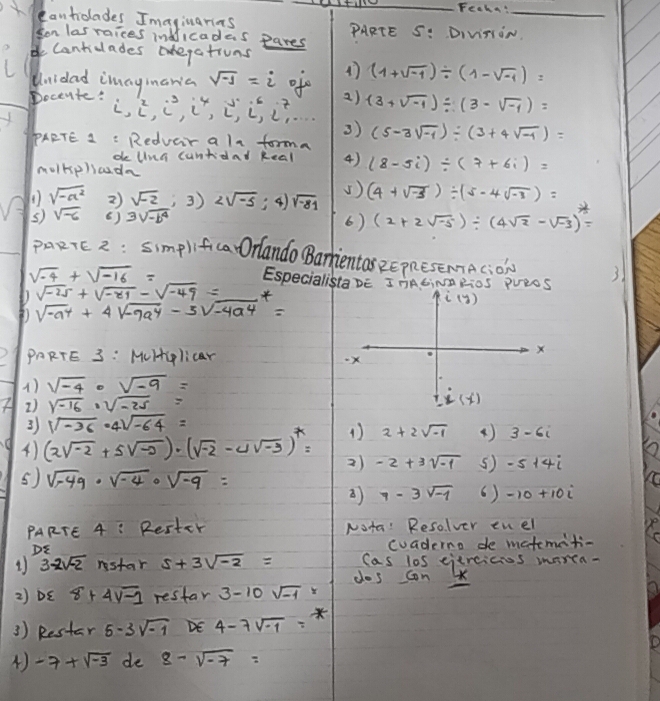 Fecha:
Cantidades Imaginarias
Son las raíces indicadas Pares
de Cantidades Negativas
Unidad imaginaria √-1 = i ojo
Docente: i, i², i³, i⁴, i⁵, i⁶, i⁷,....
PARTE 1 : Reducir a la forma
de Una cantidad Real
multiplicada
1) √-a² 2) √-2 ; 3) 2√-5 ; 4) √-81
5) √-6 6) 3√-b⁴
PARTE 2 : Simplificar
√-4 + √-16 =
) √-25 + √-81 - √-49 =
) √-a⁴ + 4√-9a⁴ - 3√-4a⁴ * =
PARTE 3 : Multiplicar
1) √-4 • √-9 =
2) √-16 • √-25 =
3) √-36 • 4√-64 =
4) (2√-2 + 5√-5) • (√-2 - 4√-3)* =
5) √-49 • √-4 • √-9 =
PARTE 4 : Restar
1) DE 3-2√2 restar 5+3√-2 =
2) DE 8+4√-1 restar 3-10 √-1 =
3) Restar 5-3√-1 DE 4-7√-1 = *
4) -7+√-3 de 8-√-7 =
PARTE 5: DIVISIÓN.
1) (1+√-1) ÷ (1-√-1) =
2) (3+√-1) ÷ (3-√-1) =
3) (5-3√-1) ÷ (3+4√-1) =
4) (8-5i) ÷ (7+6i) =
5) (4+√-3) ÷ (5-4√-3) =
6) (2+2√-5) ÷ (4√2 - √-3)* =
Orlando Barrientos
Especialista
REPRESENTACIÓN
DE IMAGINARIOS PUROS
i (y)
-x x
i (y)
1) 2+2√-1 4) 3-6i
2) -2+3√-1 5) -5+4i
3) 7-3√-1 6) -10+10i
Nota: Resolver en el
cuaderno de matemáti-
cas los ejercicios marca-
dos con *